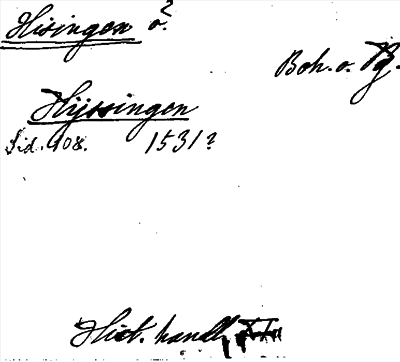 Hisingen ö.
Boh. o. Vg.
Hijssingen
Sid. 108. 1531?
Hist. handl.